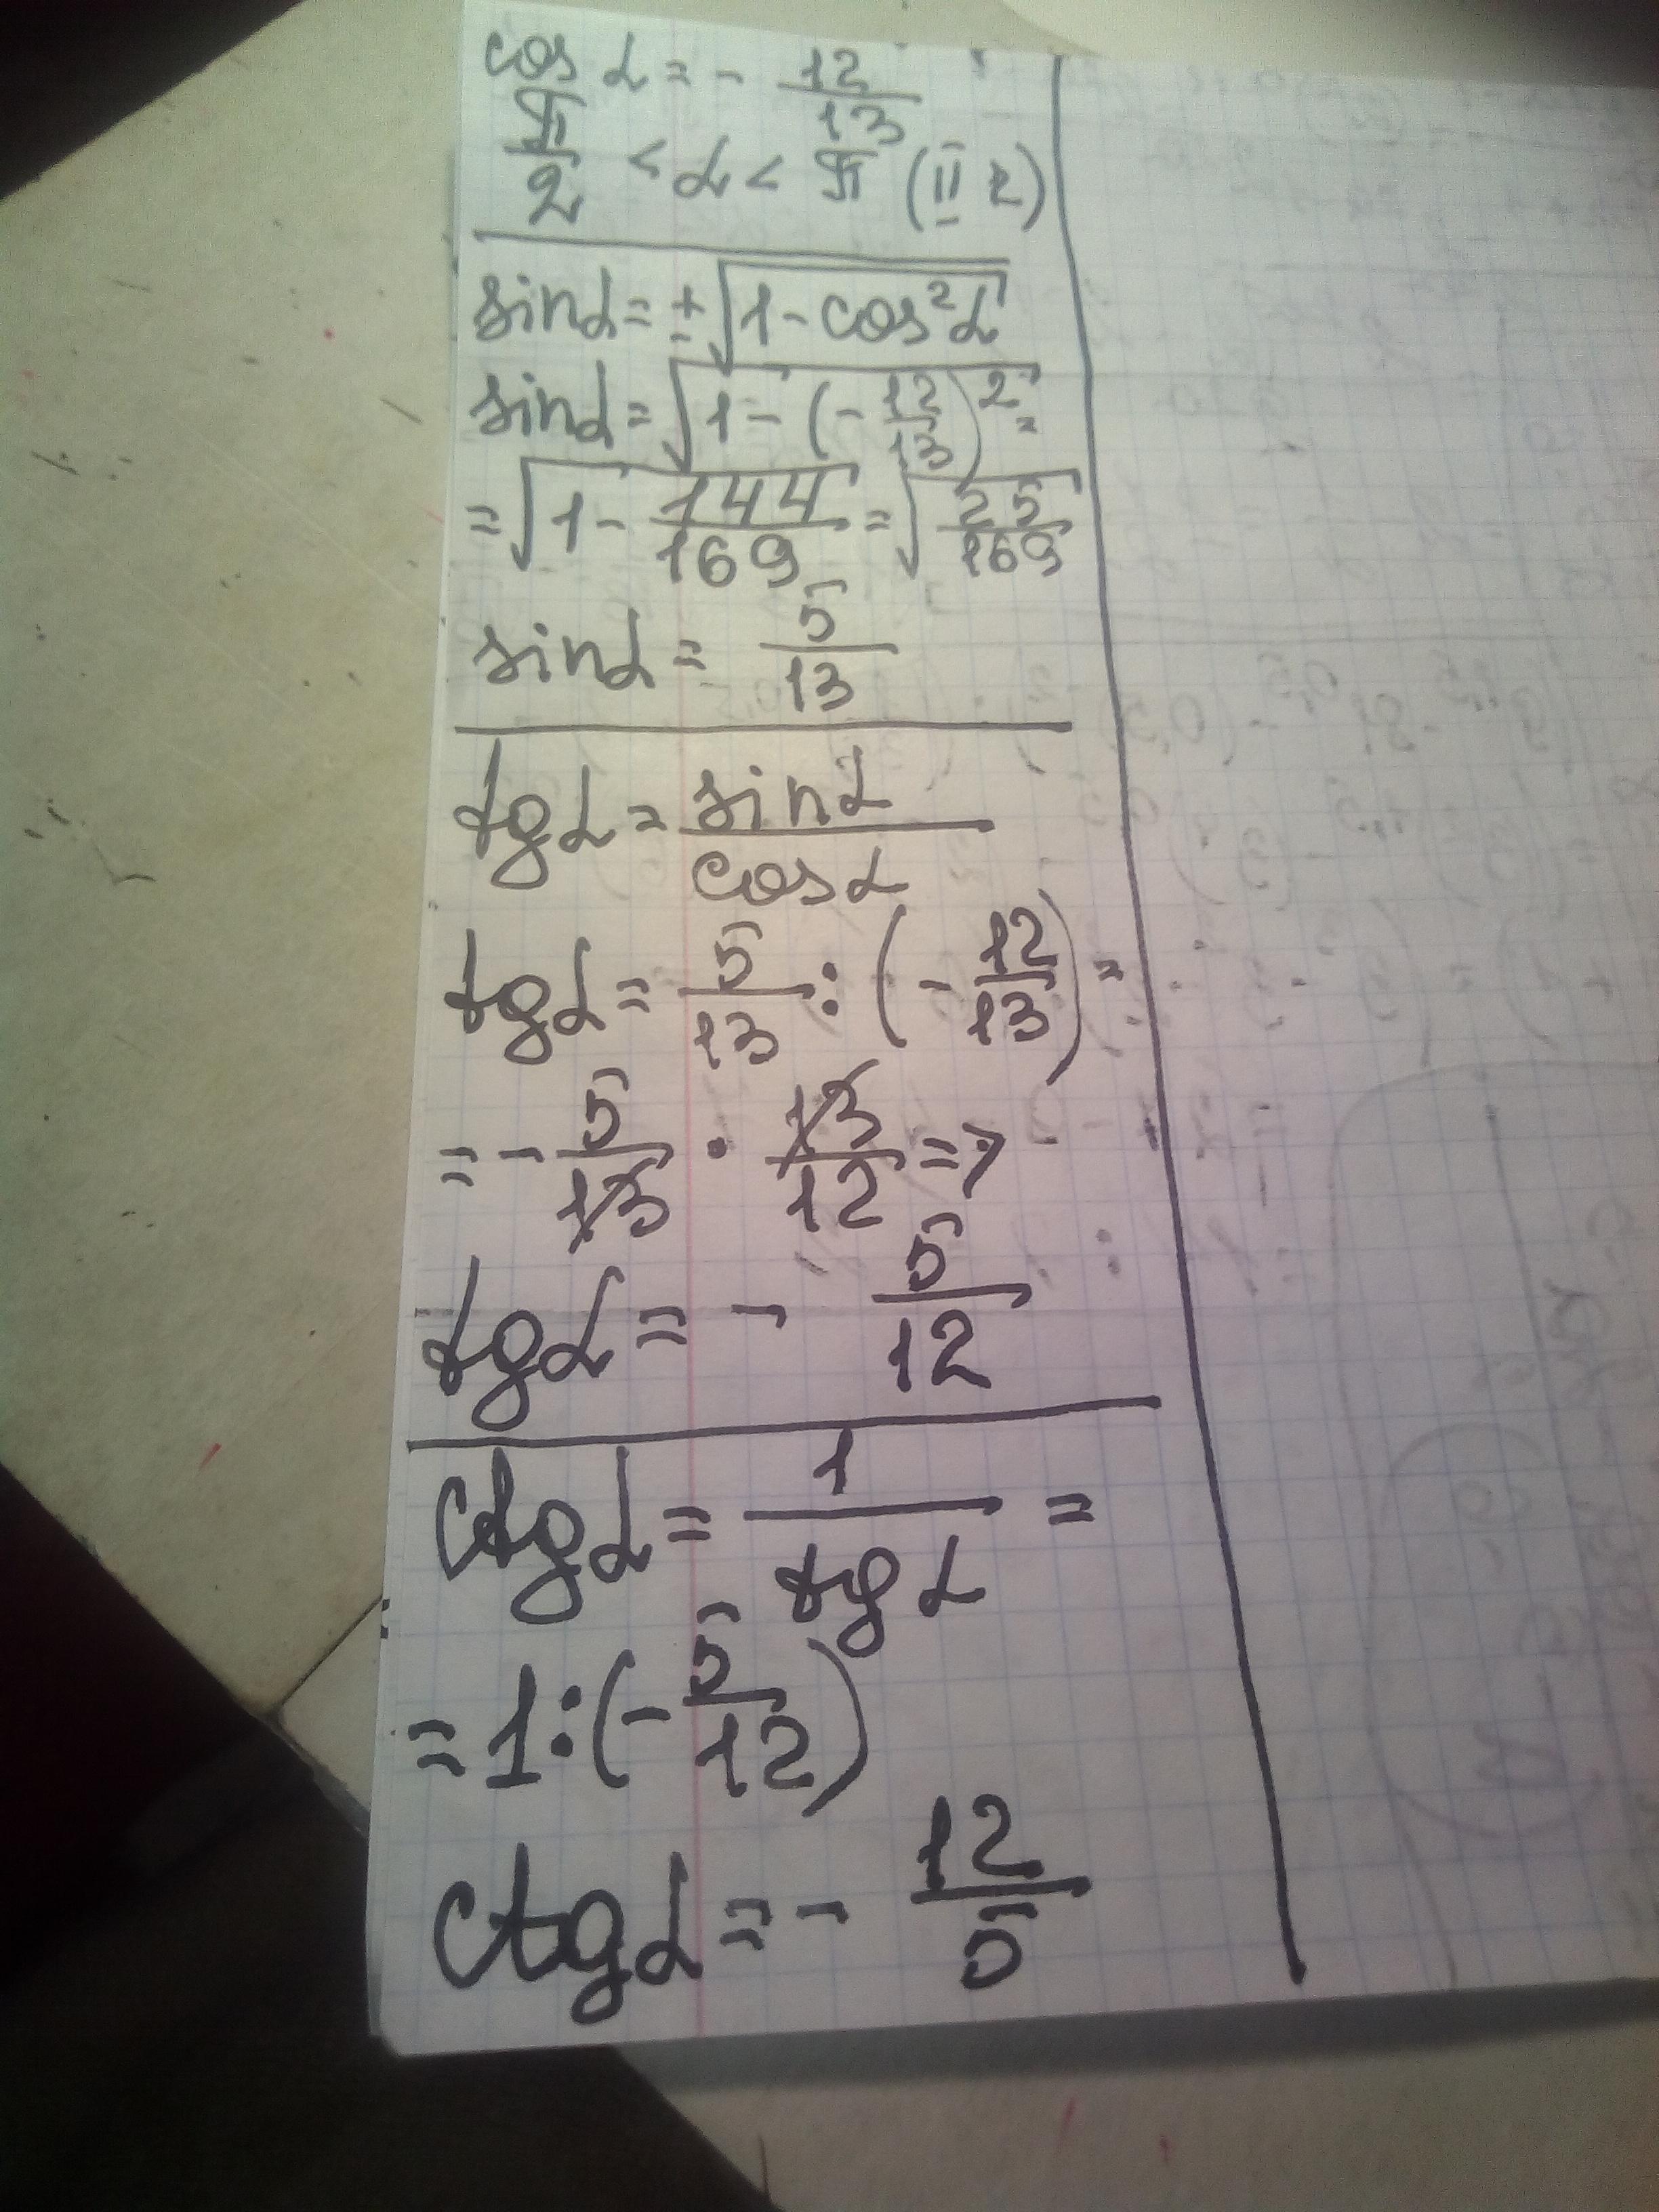 cos α = - 12/13
π/2 < α < π (II г)
sinα = ±√(1 - cos²α)
sinα = √(1 - (- 12/13)²) =
= √(1 - 144/169) = √(25/169)
sinα = 5/13
tgα = sinα/cosα
tgα = 5/13 : (- 12/13) =
= - 5/13 · 13/12 =>
tgα = - 5/12
ctgα = 1/tgα =
= 1 : (- 5/12)
ctgα = - 12/5